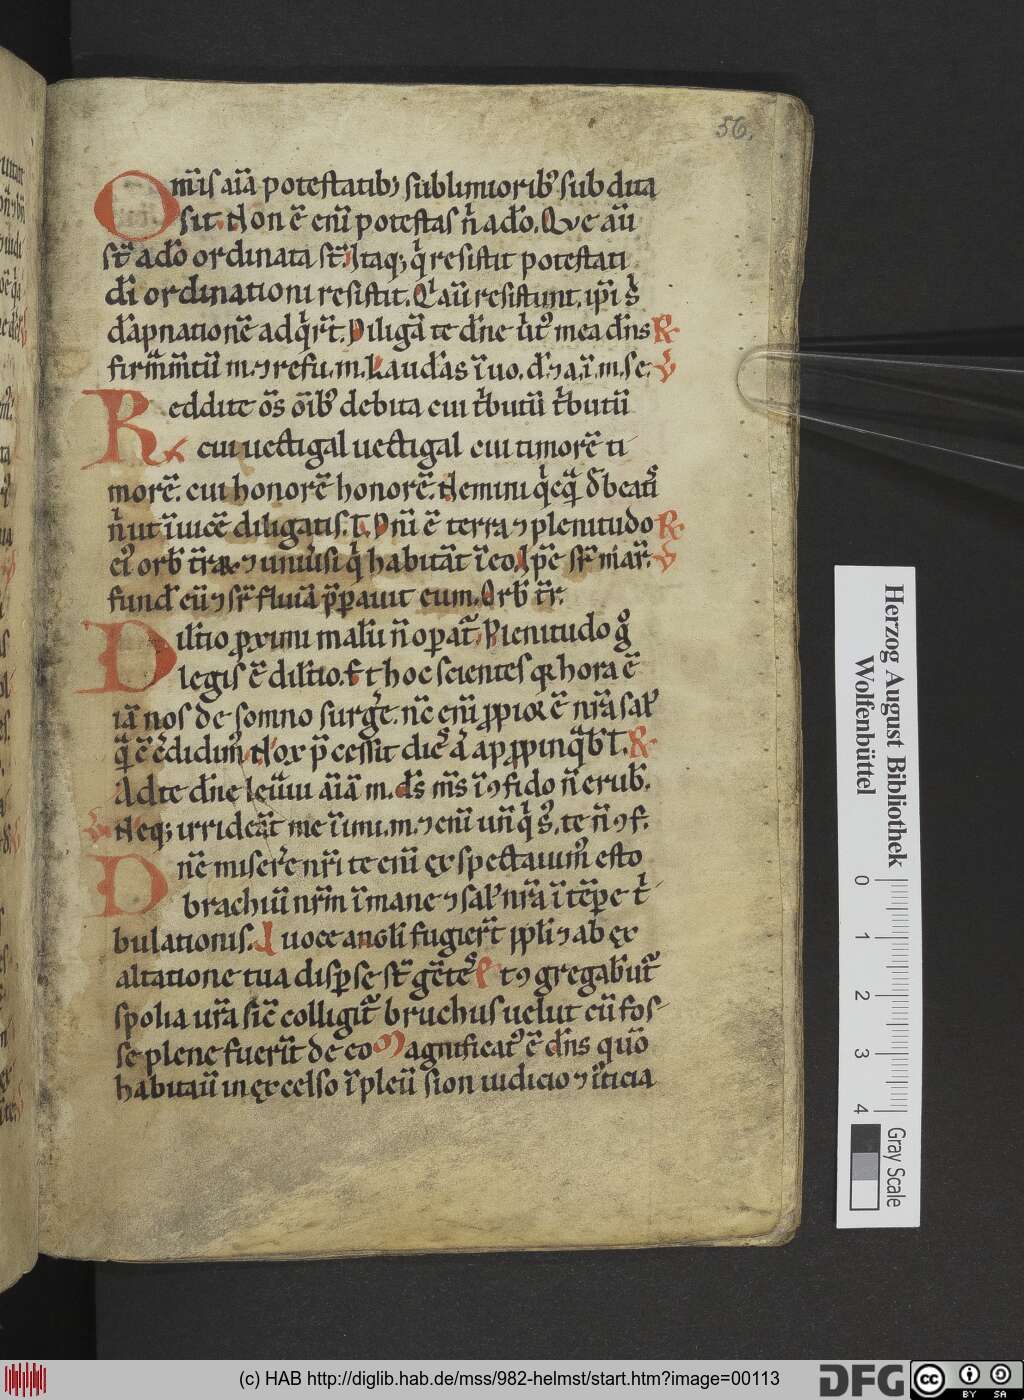 56.
Om̄is aīa potestatib; sublimiorib᷒ sub dita
sit. Non ē eni̅ potestas n̄ ado̅. Que au̅
st̅ a do̅ ordinata st̅. Itaq; qͥ resistit potestati
di̅ ordinationi resistit. Qͥ au̅ resistunt. ip̅i sͥ
da̅pnatione̅ adqͥrt̅. Diligā te dn̅e ut᷒ mea dn̅s R̵
firmm̅tu̅ m. ⁊ refu. m. Laudas i̅uo. d. ⁊ a i̅ m. se. v̄
Reddite o̅s oi̅b᷒ debita cui tͥbutu̅ tͥbutu̅
cui uectigal uectigal cui timore̅ ti
more̅. cui honore̅ honore̅. Nemini qͥcqͣ debeatis
nͥ ut i̅uice̅ diligatis. T. Dn̅i ē terra ⁊ plenitudo R̵
ei᷒ orb̅ tr̅aꝝ ⁊ uniu̅si qͥ habita̅t i̅ eo. Ip̅e sr̅ mar̅. v̄
fund̅ eu̅ ⁊ sr̅ fluia̅ p̅parauit eum. Orb̅ tr̅.
Dil̅tio proximi malu̅ n̄ opat̅. Plenitudo g̊
legis ē dil̅tio. Et hoc scientes qꝛ hora ē
ia̅ nos de somno surge̅. nc̅ eni̅ p̱pior ē nr̅a sal᷒
qͣ cͣ cͤdidim᷒ Nox p̅cessit dies a̅ ap p̱pinqͣb̅ T. R̵
Ad te dn̅e leuaui ai̅a̅ m. ds̅ ms̅ i̅ ⁊ fido n̄ erub̅.
v̄ Neq; irridea̅t me i̅imi. m. ⁊ eni̅ un̅ qͥ s᷒. te n̄ ⁊ f.
Dn̅e misere̅ nr̅i te eni̅ expectauim᷒ esto
brachiu̅ nr̅m i̅ mane ⁊ sal᷒ nr̅a i̅ te̅pe tͥ
bulationis. A uoce angli̅ fugiert̅ ppl̅i ⁊ ab ex
altatione tua disp̱se st̅ ge̅tes Et ⁊ gregabu̅t̅
spolia ur̅a sic̅ colligit̅ bruchus uelut cu̅ fos-
se plene fueri̅t de eo Magnificat᷒ ē dn̅s quo̅
habitau̅ in excelso i̅pleu̅ sion iudicio ⁊ iu̅ticia
Herzog August Bibliothek
Wolfenbüttel
0 1 2 3 4
Gray Scale
(c) HAB http://diglib.hab.de/mss/982-helmst/start.htm?image=00113
DFG
cc BY SA